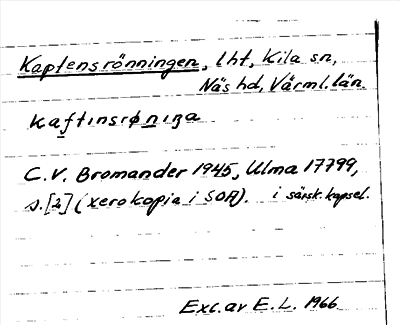 Kaptensrönningen, lht, Kila sn,
Näs hd, Värml. län.
kaftinsrøniŋa
C.V. Bromander 1945, Ulma 17799,
s.[2] (xerokopia i SOA). i särsk. kapsel.
Exc. av E.L. 1966